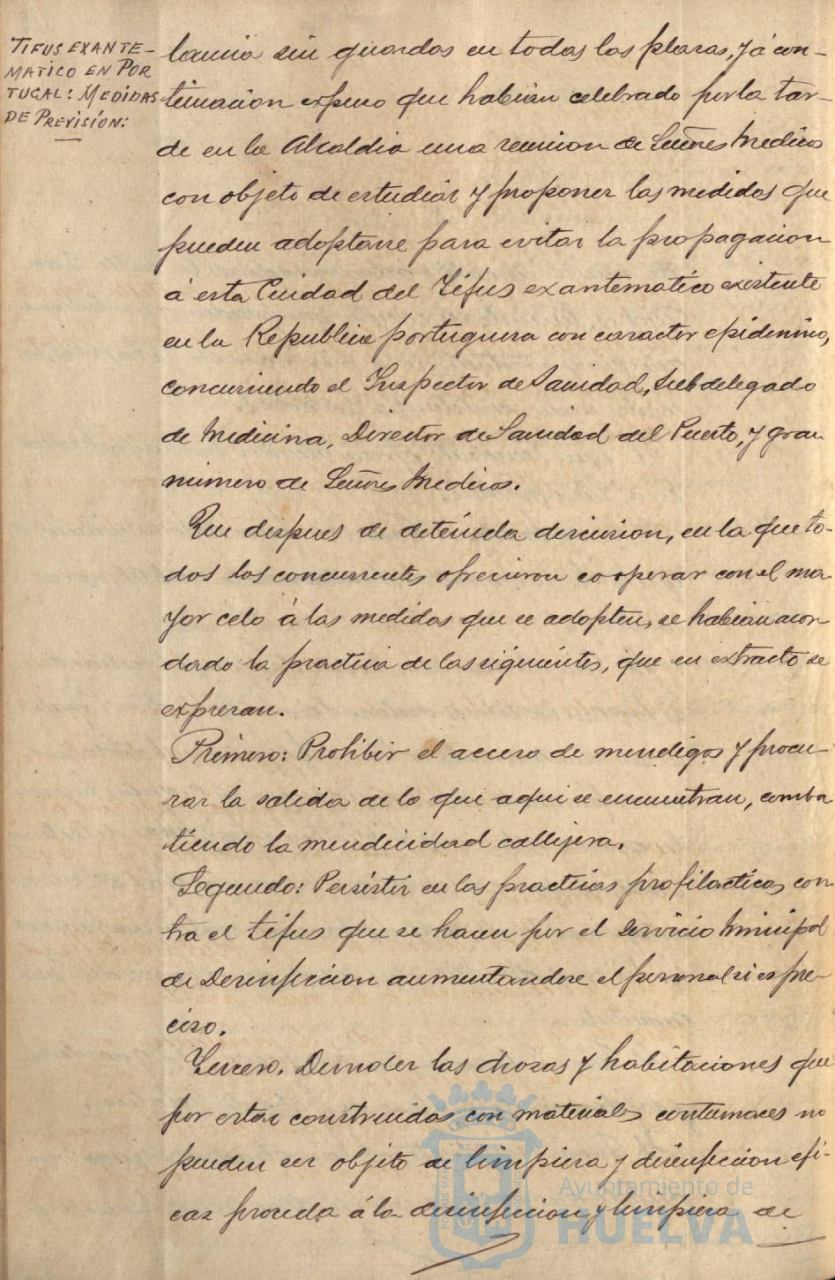 TIFUS EXANTE-
MATICO EN POR
TUGAL: MEDIDAS
DE PREVISIÓN:
sin guardas en todas las plazas, y á con-
tinuacion expuso que habian celebrado por la tar-
de en la Alcaldia una reunion de Señores Medicos
con objeto de estudiar y proponer las medidas que
pueden adoptarse para evitar la propagacion
á esta Ciudad del Tifus exantematico existente
en la Republica portuguesa con caracter epidemico,
concurriendo el Inspector de Sanidad, Subdelegado
de Medicina, Director de Sanidad del Puerto, y gran
número de Señores Medicos.
Que despues de detenida discusion, en la que to-
dos los concurrentes ofrecieron cooperar con el ma-
yor celo á las medidas que se adopten, se habian acor
dado la practica de las siguientes, que en extracto se
expresan.
Primero: Prohibir el acceso de mendigos y procu-
rar la salida de lo que aqui se encuentran, comba
tiendo la mendicidad callejera.
Segundo: Persistir en las practicas profilacticas con
tra el tifus que se hacen por el Servicio Municipal
de Desinfeccion aumentandose el personal si es pre-
ciso.
Tercero. Demoler las chozas y habitaciones que
por estar construidas con materiales contumaces no
pueden ser objeto de limpieza y desinfeccion efi-
caz proceda á la desinfeccion y limpieza de
Ayuntamiento de
HUELVA